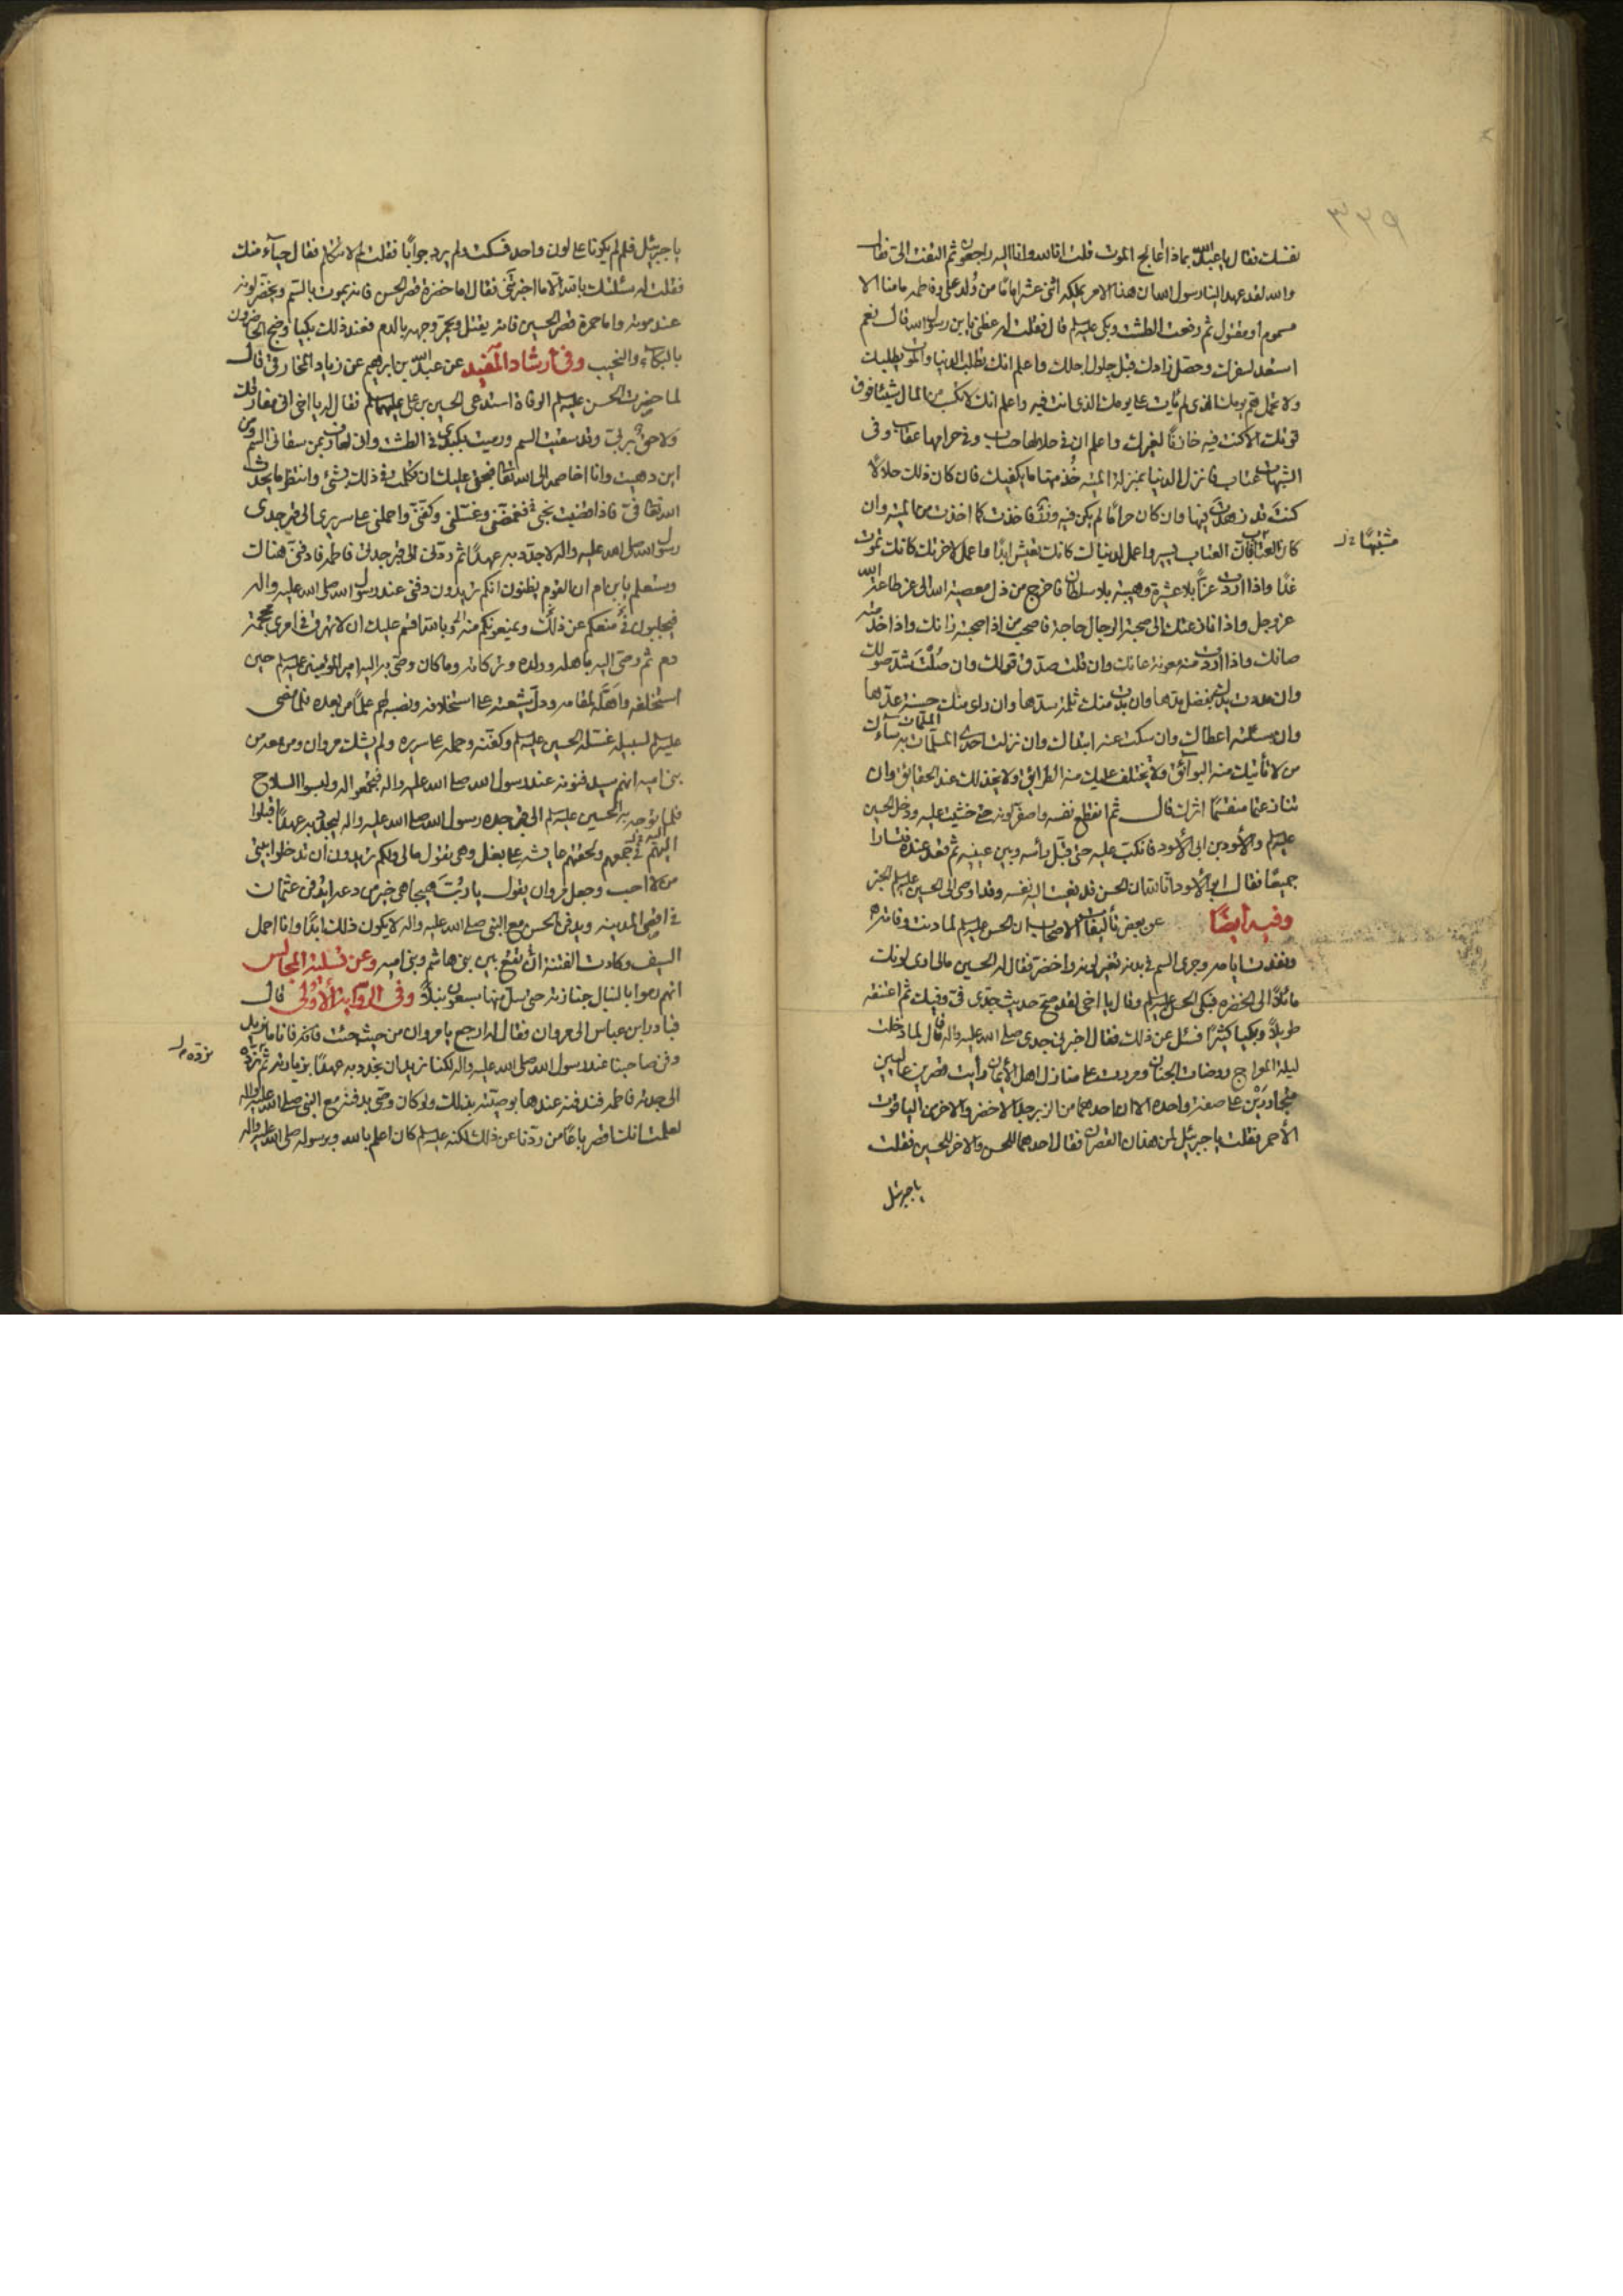 ٣٢٩
نفسك فقال يا عبد الله بماذا اعالج الموت قلت انا لله وانا اليه راجعون ثم التفت الى فقال
والله لقد عهد الينا رسول الله ان هذا الامر يملكه اثنى عشر اماما من ولد على وفاطمه ما منا الا
مسموم او مقتول ثم رفعت الطشت وبكى عليه السلم قال فقلت له عظنى يا بن رسول الله قال نعم
استعد لسفرك وحصل زادك قبل حلول اجلك واعلم انك تطلب الدنيا والموت يطلبك
ولا تحمل هم يومك الذى لم يأت على يومك الذى انت فيه واعلم انك لا تكسب من المال شيئا فوق
قوتك الا كنت فيه خازنًا لغيرك واعلم ان فى حلالها حساب وفى حرامها عقاب وفى
الشبهات عتاب فانزل الدنيا بمنزلة الميته خُذ منها ما يكفيك فان كان ذلك حلالًا
كنتَ قد زهدت فيها وان كان حرامًا لم يكن فيه وزر فاخذت كما اخذت من الميته وان
كان العتاب فان العتاب يسير واعمل لدنياك كانك تعيش ابدًا واعمل لاخرتك كانك تموت
مشتبهًا
غدًا واذا اردت عزًّا بلا عشيرة وهيبة بلا سلطان فاخرج من ذل معصية الله الى عز طاعة الله
عز وجل واذا نازعتك الى صحبة الرجال حاجة فاصحب من اذا صحبته زانك واذا خدمته
صانك واذا اردت منه معونة عانك وان قلت صدق قولك وان صُلتَ شدّ صولك
وان مددت يدك بفضل مدها وان بدت منك ثلمة سدها وان راى منك حسنة عدّها
وان سئلته اعطاك وان سكت عنه ابتداك وان نزلت احدى الملمات به سآءك
من لا تأتيك منه البوائق ولا يختلف عليك منه الطرائق ولا يخذلك عند الحقايق وان
تنازعتما منقسمًا اثرك قال ثم انقطع نفسه واصفر لونه حتى خشيت عليه ودخل الحسين
عليه السلم والأسود بن ابى الأسود فانكب عليه حتى قبل رأسه وبين عينيه ثم قعد عنده فتسارا
جميعًا فقال ابو الأسود انا لله ان الحسن قد نعيت اليه نفسه وقد اوصى الى الحسين عليه السلم الخبر
وفيه أيضًا عن بعض تأليفات الاصحاب ان الحسن عليه السلم لما دنت وفاته
ونفدت ايامه وجرى السم فى بدنه تغير لونه واخضر فقال له الحسين مالى ارى لونك
مائلًا الى الخضرة فبكى الحسن عليه السلم وقال يا اخى لقد صح حديث جدى فىّ وفيك ثم اعتنقه
طويلًا وبكيا كثيرًا فسئل عن ذلك فقال اخبرنى جدى صلى الله عليه واله قال لما دخلت
ليلة المعراج روضات الجنان ومررت على منازل اهل الأيمان رأيت قصرين عاليين
متجاورين على صفة واحده الا ان احدهما من الزبرجد الاخضر والاخر من الياقوت
الأحمر فقلت يا جبرئيل لمن هذان القصران فقال احدهما للحسن والاخر للحسين فقلت
يا جبرئيل
يا جبرئيل فلم لم يكونا على لون واحد فسكت ولم يرد جوابًا فقلت لم لا تتكلم فقال حيآء منك
فقلت له سئلتك بالله الا ما اخبرتنى فقال اما خضرة قصر الحسن فانه يموت بالسّم ويخضر لونه
عند موته واما حمرة قصر الحسين فانه يقتل ويحمر وجهه بالدم فعند ذلك بكيا وضج الحاضرون
بالبكاء والنحيب وفى ارشاد المفيد عن عبد الله بن ابراهيم عن زياد المخارقى قال
لما حضرت الحسن عليه السلم الوفاة استدعى الحسين بن على عليهما السلم فقال له يا اخى انى مفارقك
ولاحق بربى وقد سقيت السم ورميت بكبدى فى الطشت وانى لعارف بمن سقانى السم ومن
اين دهيت وانا اخاصمه الى الله تعالى فبحقى عليك ان تكلمت فى ذلك بشئ وانتظر ما يحدث
الله تعالى فىّ فاذا قضيت نحبى فغمضنى وغسلنى وكفنى واحملنى على سريرى الى قبر جدى
رسول الله صلى الله عليه واله لاجدد به عهدًا ثم ردنى الى قبر جدتى فاطمه فادفنى هناك
وستعلم يا بن ام ان القوم يظنون انكم تريدون دفنى عند رسول الله صلى الله عليه واله
فيجلبون فى منعكم عن ذلك ويمنعونكم منه وبالله اقسم عليك ان لا تهرق فى امرى محجمة
دم ثم وصى اليه باهله وولده وتركاته وما كان وصى به اليه امير المؤمنين عليه السلم حين
استخلفه واهّله لمقامه ودل شيعته على استخلافه ونصبه لهم علمًا من بعده فلما مضى
عليه السلم لسبيله غسله الحسين عليه السلم وكفنه وحمله على سريره ولم يشك مروان ومن معه من
بنى اميه انهم سيدفنونه عند رسول الله صلى الله عليه واله فتجمعوا له ولبسوا السلاح
فلما توجه به الحسين عليه السلم الى قبر جده رسول الله صلى الله عليه واله ليجدد به عهدًا اقبلوا
اليهم فى جمعهم ولحقتهم عايشه على بغل وهى تقول مالى ولكم تريدون ان تدخلوا بيتى
من لا احب وجعل مروان يقول يا رُبَّ هيجا هى خير من دعه ايدفن عثمان
فى اقصى المدينه ويدفن الحسن مع النبى صلى الله عليه واله لا يكون ذلك ابدًا وانا احمل
السيف وكادت الفتنة ان تقع بين بنى هاشم وبنى اميه وعن تسلية المجالس
انهم رموا بالنبال جنازته حتى سل منها سبعون نبلًا وفى الرواية الأولى قال
فبادر ابن عباس الى مروان فقال له ارجع يا مروان من حيث جئت فانه فانا ما نريد
دفن صاحبنا عند رسول الله صلى الله عليه واله لكنا نريد ان نجدد به عهدًا بزيارته ثم نرده
نردّه
الى جدته فاطمه فندفنه عندها بوصيته بذلك ولو كان وصى بدفنه مع النبى صلى الله عليه واله
لعلمت انك اقصر باعًا من ردّنا عن ذلك لكنه عليه السلم كان اعلم بالله وبرسوله صلى الله عليه واله